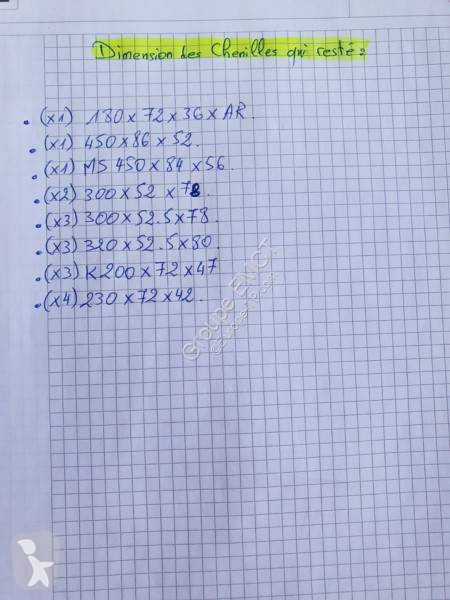 Dimension des Chenilles qui reste :
• (x1) 180 x 72 x 36 x AR.
• (x1) 450 x 86 x 52.
• (x1) MS 450 x 84 x 56.
• (x2) 300 x 52 x 78.
• (x3) 300 x 52.5 x 78.
• (x3) 320 x 52.5 x 80.
• (x3) K200 x 72 x 47
• (x4) 230 x 72 x 42.
Groupe EMCT